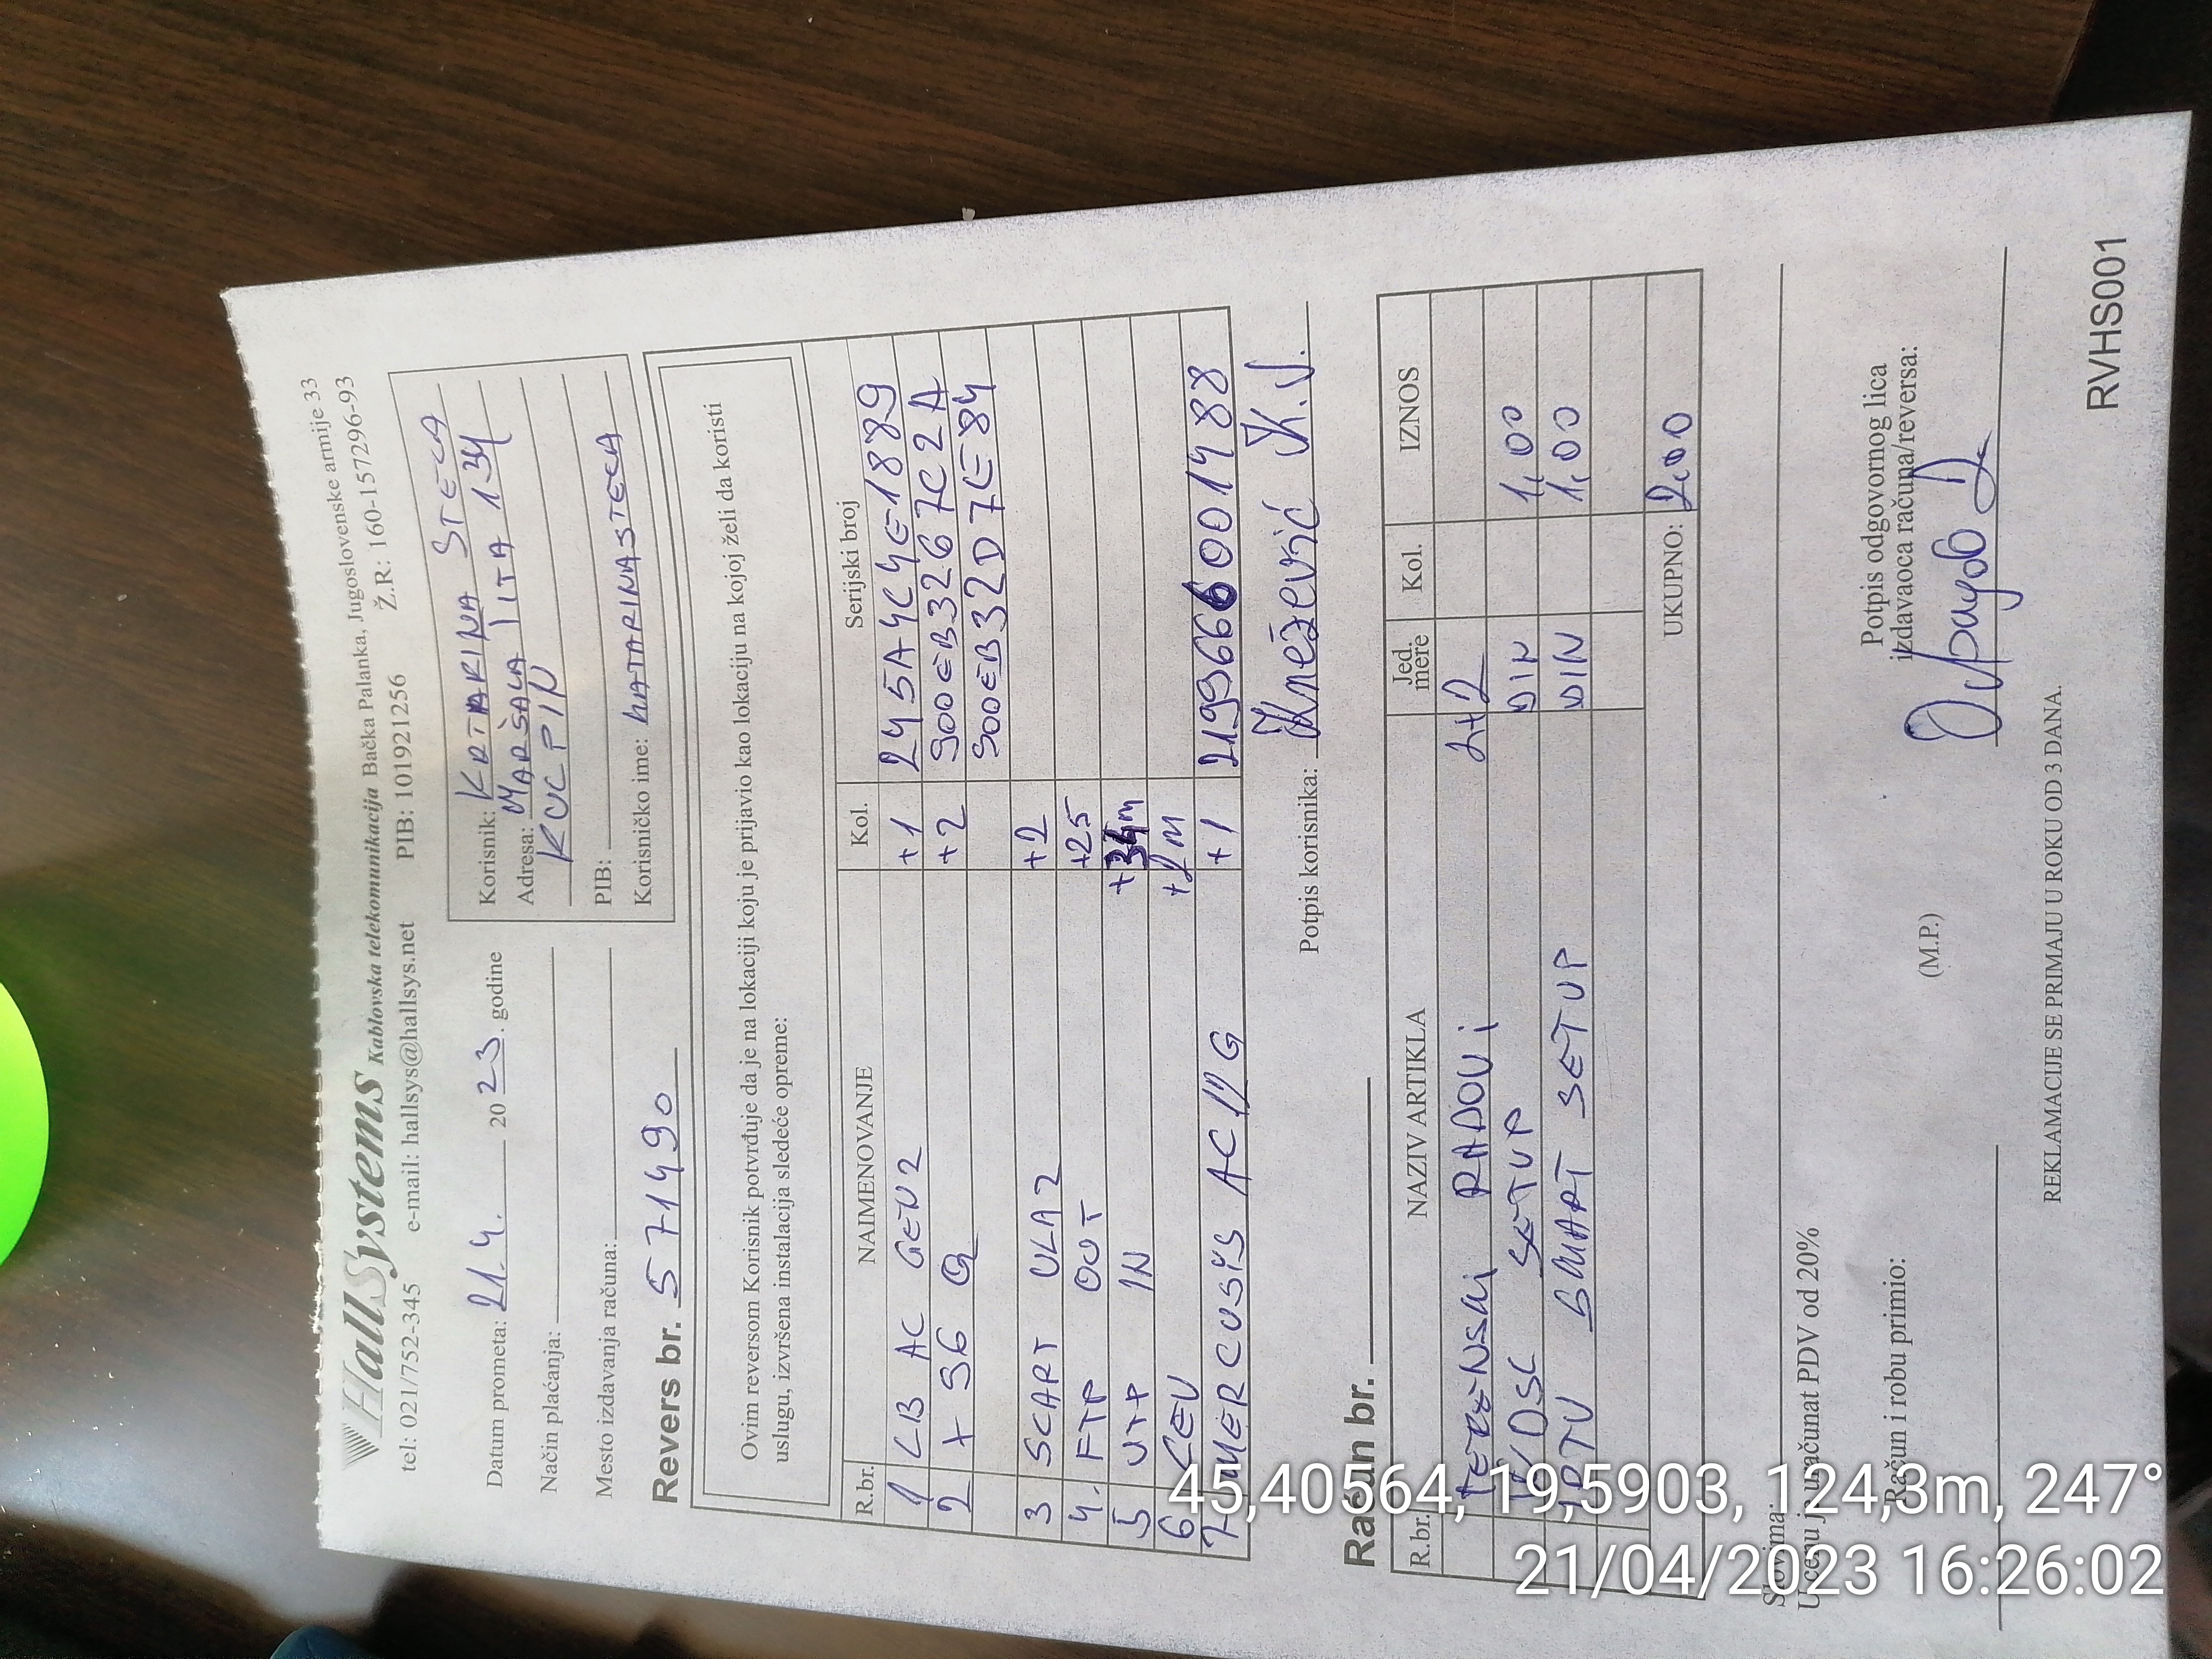 HallSystems Kablovska telekomunikacija Bačka Palanka, Jugoslovenske armije 33
tel: 021/752-345 e-mail: hallsys@hallsys.net PIB: 101921256 Ž.R: 160-157296-93
Datum prometa: 21.4. 2023. godine
Način plaćanja:
Mesto izdavanja računa:
Korisnik: KATARINA STECA
Adresa: MARŠALA TITA 134
KULPIN
PIB:
Korisničko ime: KATARINASTECA
Revers br. 571490
Ovim reversom Korisnik potvrđuje da je na lokaciji koju je prijavio kao lokaciju na kojoj želi da koristi
uslugu, izvršena instalacija sledeće opreme:
R.br. NAIMENOVANJE Kol. Serijski broj
1 LB AC GEN2 +1 245A4C4E1889
2 X 96 Q +2 500EB3267C2A
500EB32D7E84
3 SCART ULAZ +2
4. FTP OUT +25
5 UTP IN
6 CEV
7 MERCUSYS AC12G +1 2199666001488
Potpis korisnika: Knežević K.J.
Račun br.
R.br. NAZIV ARTIKLA Jed. mere Kol. IZNOS
TERENSKI RADOVI 2+2
SETUP DIN 1,00
IPTV SMART SETUP DIN 1,00
UKUPNO: 2,00
Slovima:
U cenu je uračunat PDV od 20%
Račun i robu primio:
(M.P.)
Potpis odgovornog lica
izdavaoca računa/reversa:
REKLAMACIJE SE PRIMAJU U ROKU OD 3 DANA.
RVHS001
45,40564, 19,5903, 124,3m, 247°
21/04/2023 16:26:02